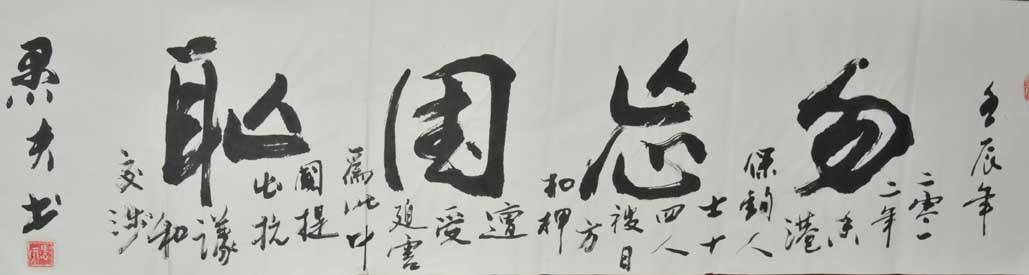 壬辰年
勿忘国耻
二零一
二年
香
港
保釣人
士十
四人
被日
方
扣押
遭
受
迫害
爲此中
國提
出抗
議
和
交涉
夫书